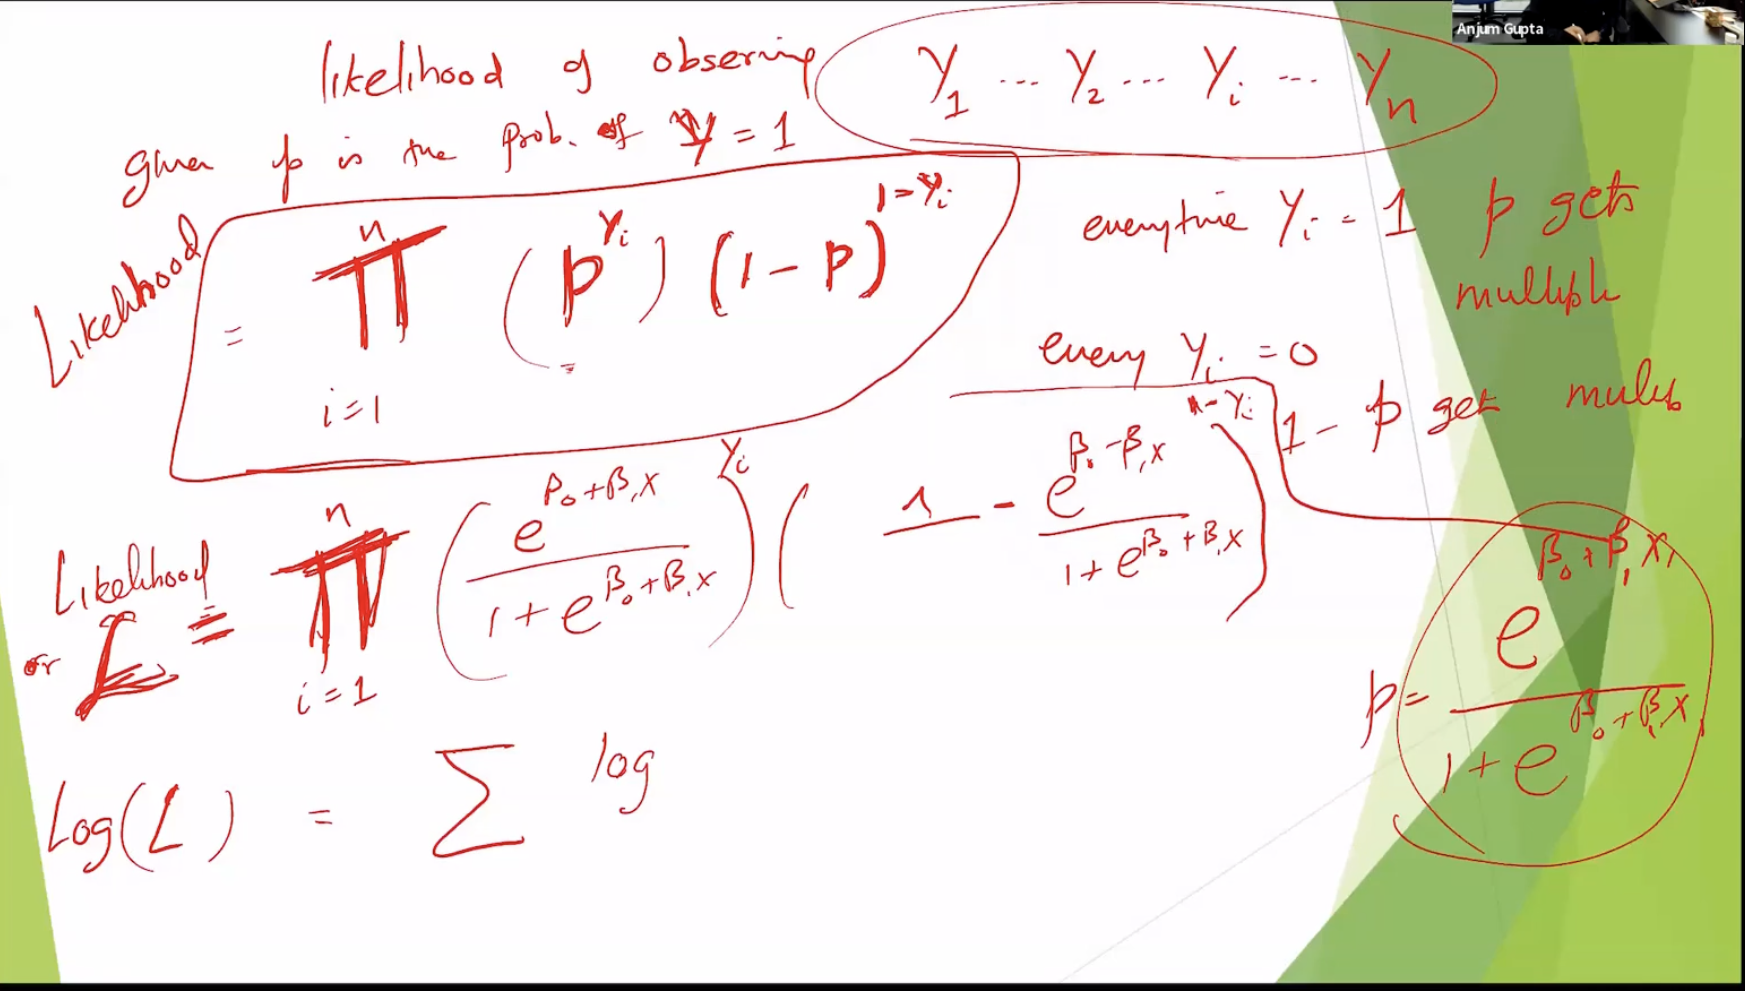 Anjum Gupta
likelihood of observing Y₁ ... Y₂ ... Yᵢ ... Yₙ
given p is the prob. of Y = 1
Likelihood = ∏ᵢ₌₁ⁿ (p^Yᵢ) (1 - p)^(1-Yᵢ)
everytime Yᵢ = 1 p gets
multiple
every Yᵢ = 0
1 - p get
Likelihood or L = ∏ᵢ₌₁ⁿ (e^(β₀+β₁X) / (1 + e^(β₀+β₁X)))^Yᵢ (1 - e^(β₀-β₁X) / (1 + e^(β₀+β₁X)))^(1-Yᵢ)
p = e^(β₀+β₁X₁) / (1 + e^(β₀+β₁X₁))
Log(L) = Σ log